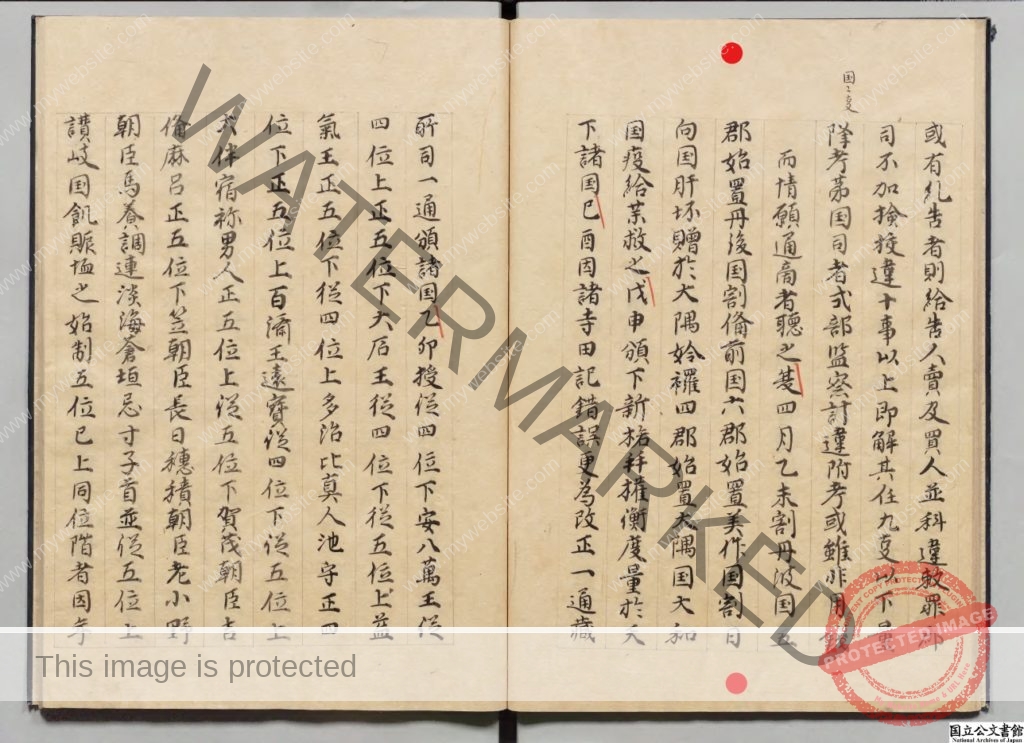 国々支
或有糺告者則給告人賣及買人並科違勅罪郡
司不加撿挍違十事以上即解其任九支以下量
降考第国司者式部監察計違附考或雖非用
而情願通商者聴之夏四月乙未割丹波国五
郡始置丹後国割俻前国六郡始置美作国割日
向国肝坏贈於大隅姶䙫四郡始置大隅国大和
国疫給薬救之戊申頒下新格并權衡度量於天
下諸国己酉因諸寺田記錯誤更為改正一通蔵
所司一通頒諸国乙卯授従四位下安八萬王従
四位上正五位下大石王従四位下従五位上益
氣王正五位下従四位上多治比真人池守正四
位下正五位上百済王遠寶従四位下従五位上
大伴宿祢男人正五位上従五位下賀茂朝臣吉
俻麻呂正五位下笠朝臣長目穂積朝臣老小野
朝臣馬養調連淡海倉垣忌寸子首並従五位上
讃岐国飢賑恤之始制五位已上同位階者因年
WATERMARKED
mywebsite.com
PROTECTED IMAGE
This image is protected
国立公文書館
National Archives of Japan